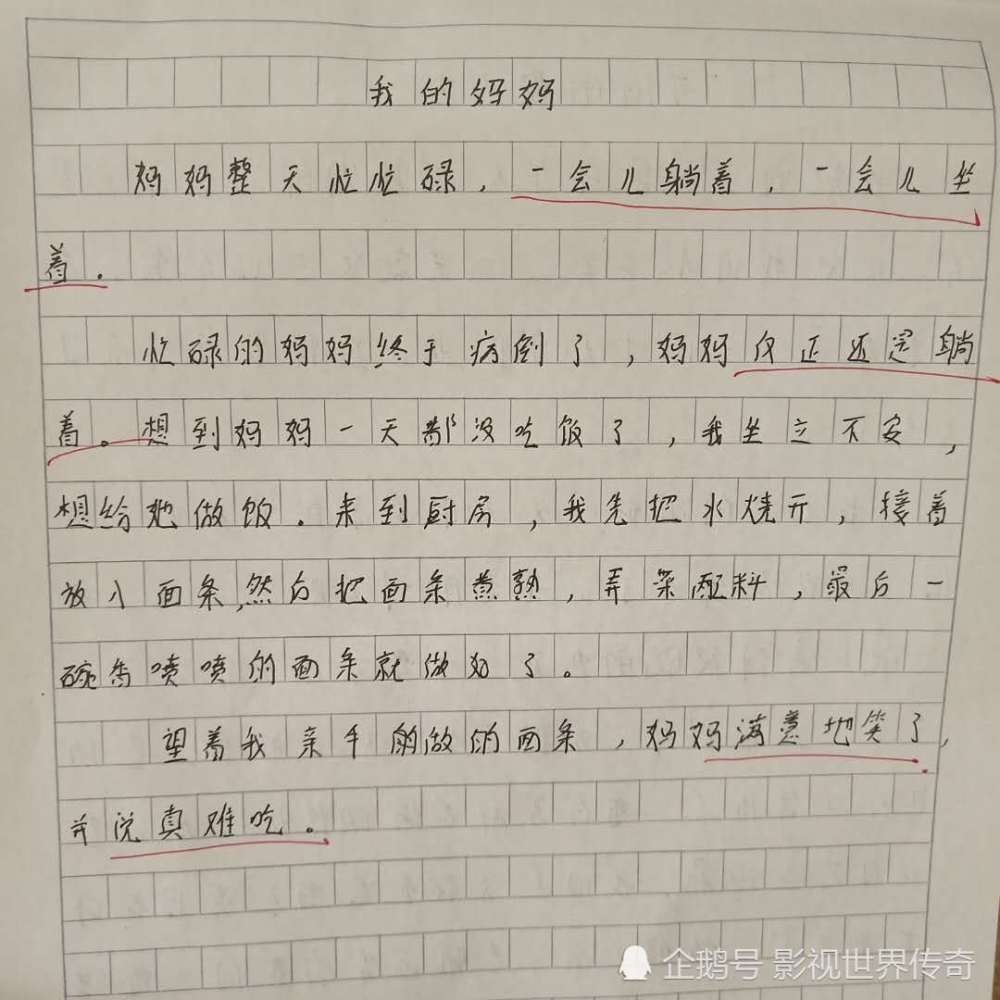 我的妈妈
妈妈整天忙忙碌，一会儿躺着，一会儿坐
着。
忙碌的妈妈终于病倒了，妈妈仅正还是躺
着。想到妈妈一天都没吃饭了，我坐立不安，
想给她做饭。来到厨房，我先把水烧开，接着
放入面条，然后把面条煮熟，弄菜配料，最后一
碗香喷喷的面条就做好了。
望着我亲手做的面条，妈妈满意地笑了，
并说真难吃。
企鹅号 影视世界传奇